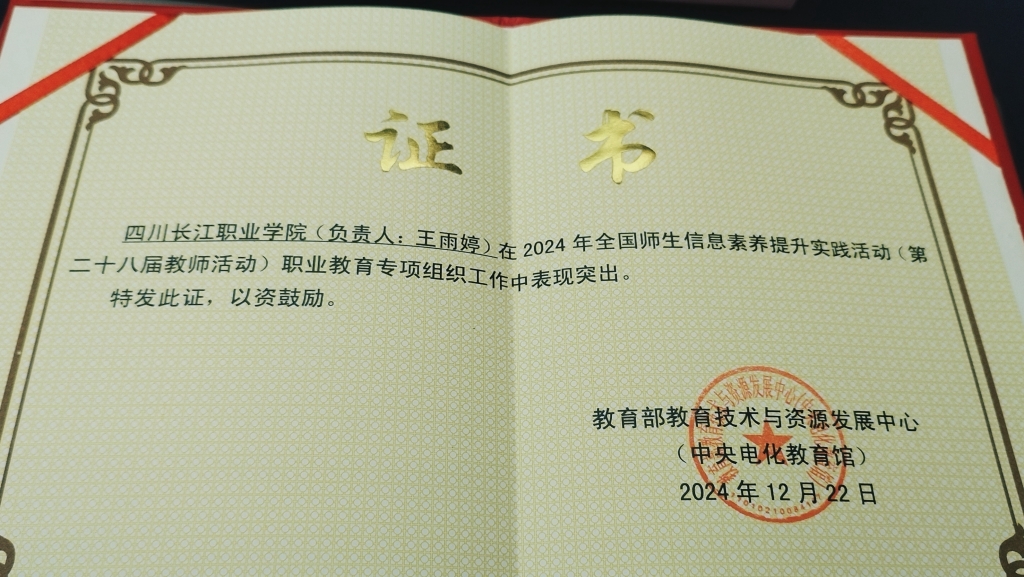 证 书
四川长江职业学院（负责人：王雨婷）在 2024 年全国师生信息素养提升实践活动（第
二十八届教师活动）职业教育专项组织工作中表现突出。
特发此证，以资鼓励。
教育部教育技术与资源发展中心
（中央电化教育馆）
2024 年 12 月 22 日